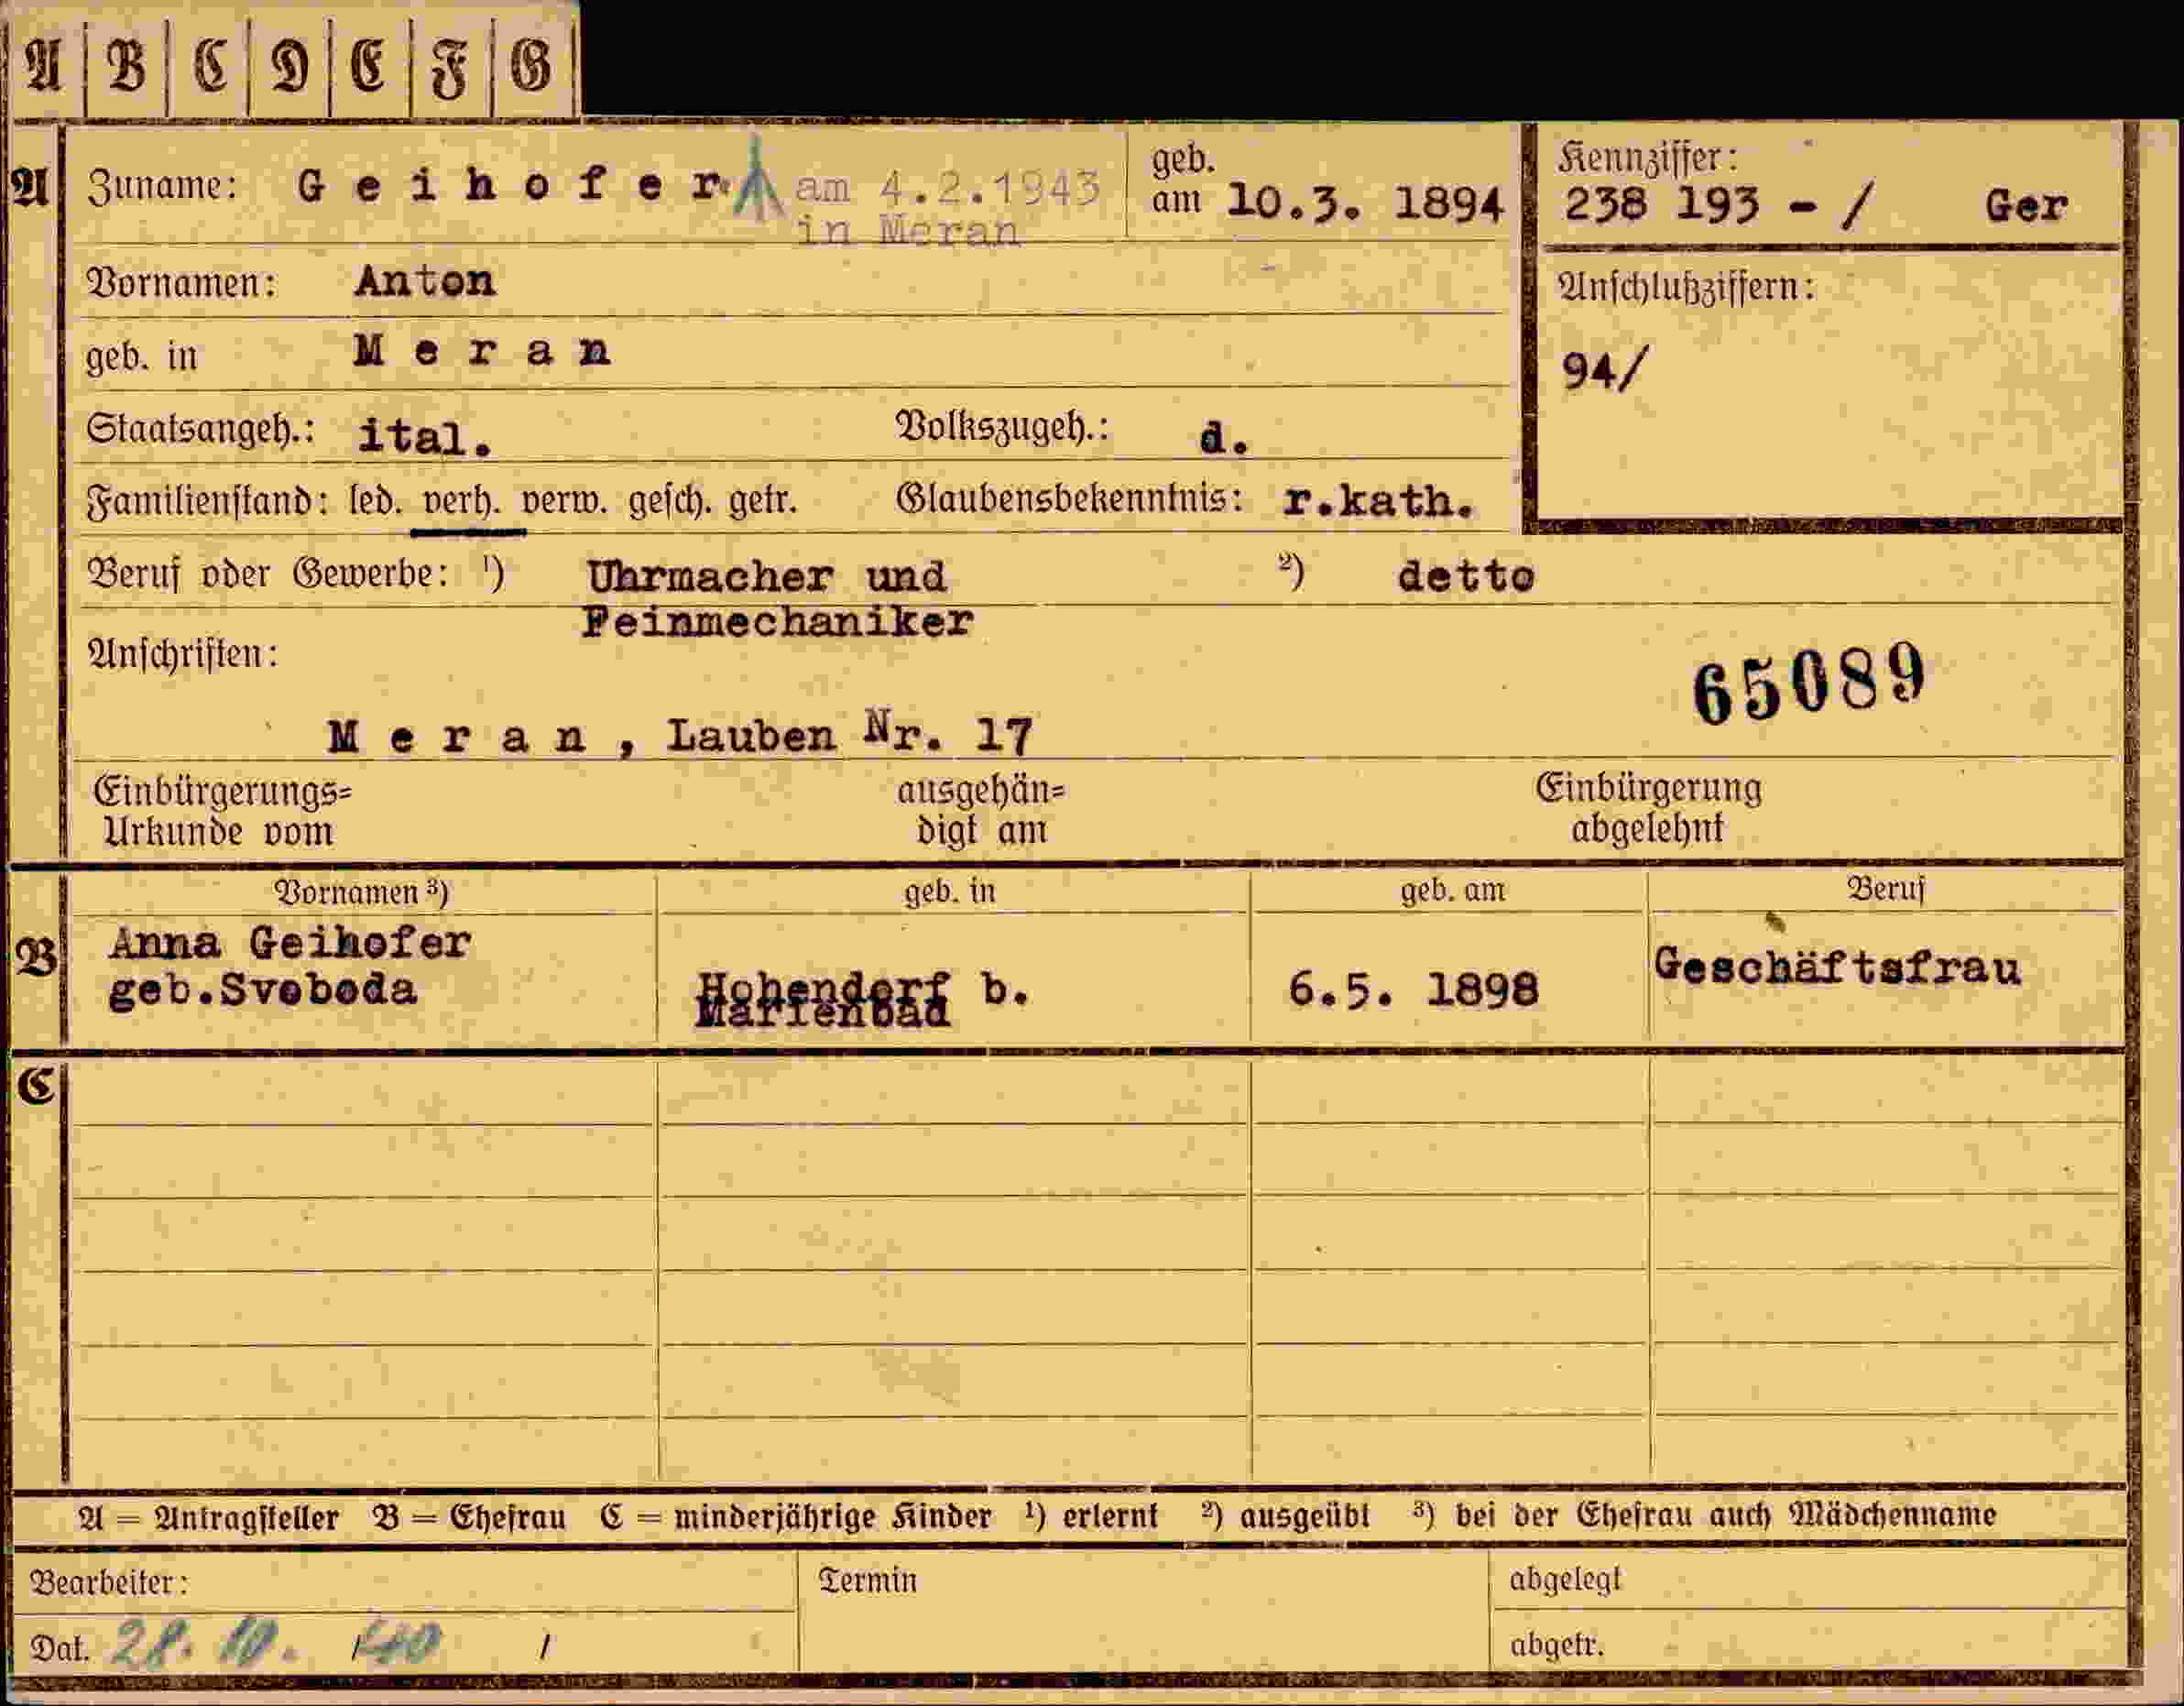 A B C D E F G
A Zuname: Geihofer am 4.2.1943 geb. am 10.3. 1894 Kennziffer:
in Meran 238 193 - / Ger
Vornamen: Anton Anschlußziffern:
geb. in Meran 94/
Staatsangeh.: ital. Volkszugeh.: d.
Familienstand: led. verh. verw. gesch. getr. Glaubensbekenntnis: r.kath.
Beruf oder Gewerbe: 1) Uhrmacher und 2) detto
Feinmechaniker
Anschriften:
65089
Meran, Lauben Nr. 17
Einbürgerungs= ausgehän= Einbürgerung
Urkunde vom digt am abgelehnt
Vornamen 3) geb. in geb. am Beruf
B Anna Geihofer Geschäftsfrau
geb.Svoboda Hohendorf b. 6.5. 1898
Marienbad
C
A = Antragsteller B = Ehefrau C = minderjährige Kinder 1) erlernt 2) ausgeübt 3) bei der Ehefrau auch Mädchenname
Bearbeiter: Termin abgelegt
Dat. 28. 10. /40 / abgetr.